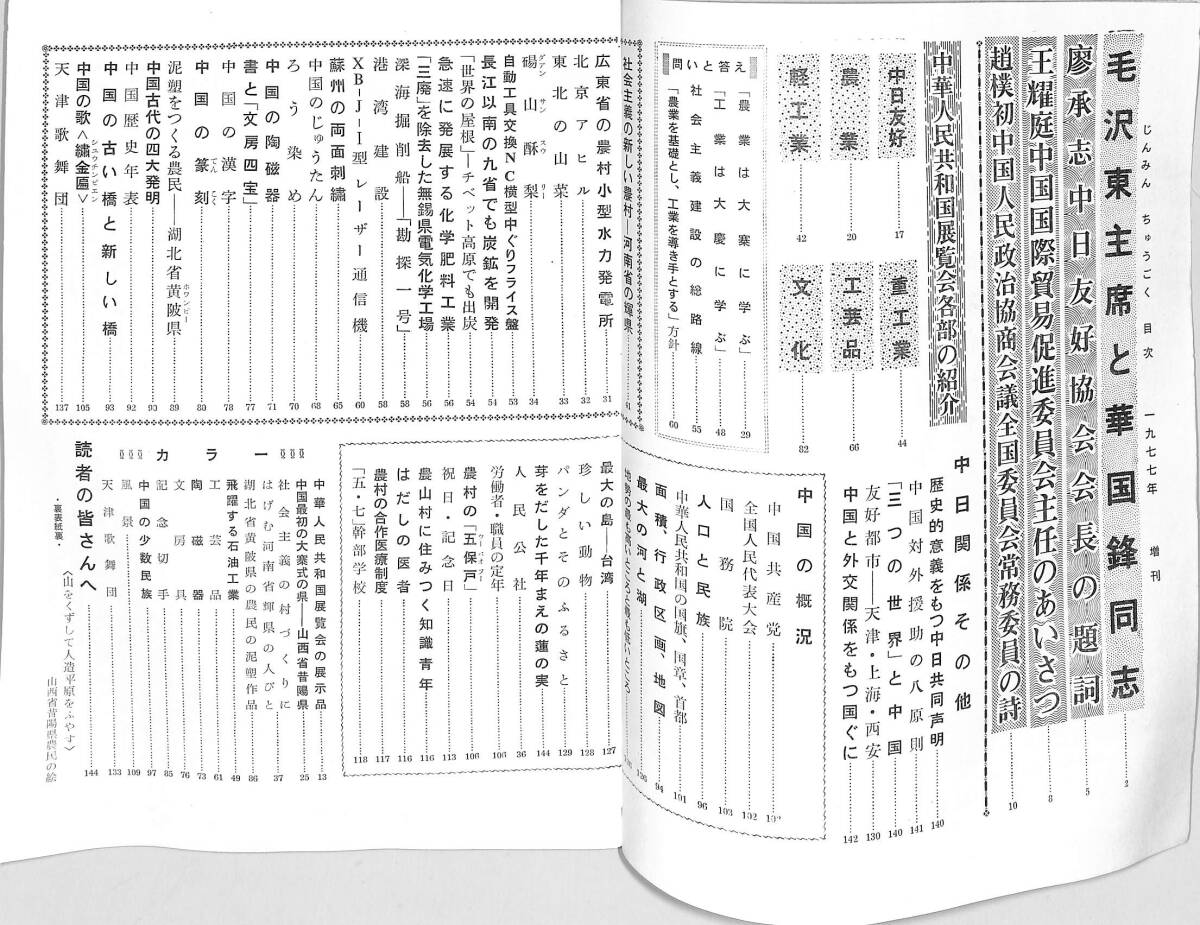 じんみん ちゅうごく 目次 一九七七年 増刊
毛沢東主席と華国鋒同志……2
廖承志中日友好協会会長の題詞……5
王耀庭中国国際貿易促進委員会主任のあいさつ……8
趙樸初中国人民政治協商会議全国委員会常務委員の詩……10
中華人民共和国展覧会各部の紹介
中日友好……17
農業……20
軽工業……42
重工業……44
工芸品……66
文化……82
問いと答え
「農業は大寨に学ぶ」……29
「工業は大慶に学ぶ」……48
社会主義建設の総路線……55
「農業を基礎とし、工業を導き手とする」方針……60
中日関係その他
歴史的意義をもつ中日共同声明……140
中国対外援助の八原則……141
「三つの世界」と中国……140
友好都市――天津・上海・西安……130
中国と外交関係をもつ国ぐに……142
中国の概況
中国共産党
全国人民代表大会……102
国務院……103
人口と民族……96
中華人民共和国の国旗、国章、首都……101
面積、行政区画、地図……94
最大の河と湖
社会主義の新しい農村――河南省の輝県……41
広東省の農村小型水力発電所……31
北京アヒル……32
東北の山菜……33
碭山酥梨……34
ダアン サン スウ リー
自動工具交換NC横型中ぐりフライス盤……53
長江以南の九省でも炭鉱を開発……54
「世界の屋根」―チベット高原でも出炭……54
急速に発展する化学肥料工業……56
「三廃」を除去した無錫県電気化学工場……56
深海掘削船――「勘探一号」……58
港湾建設……58
XB―J―I型レーザー通信機……60
蘇州の両面刺繡……65
中国のじゅうたん……68
ろうう染め……70
中国の陶磁器……71
書と「文房四宝」……77
中国の漢字……78
中国の篆刻……80
てん こく
泥塑をつくる農民――湖北省黄陂県……89
ホワンピー
中国古代の四大発明……92
中国歴史年表……93
中国の古い橋と新しい橋……93
中国の歌〈繡金匾〉……105
シユウチンピエン
天津歌舞団……137
最大の島――台湾……127
珍しい動物……128
パンダとそのふるさと……129
芽をだした千年まえの蓮の実……144
人民公社……36
労働者・職員の定年……106
農村の「五保戸」……106
ウーパオフー
祝日・記念日……113
農山村に住みつく知識青年……116
はだしの医者……116
農村の合作医療制度……117
「五・七」幹部学校……118
カラー
中華人民共和国展覧会の展示品……13
中国最初の大寨式の県――山西省昔陽県……25
社会主義の村づくりに
はげむ河南省輝県の人びと……37
湖北省黄陂県の農民の泥塑作品……86
飛躍する石油工業……49
工芸品……61
陶磁器……73
文房具……76
記念切手……85
中国の少数民族……97
風景……109
天津歌舞団……133
読者の皆さんへ……144
・裏表紙裏・
〈山をくずして人造平原をふやす〉
山西省昔陽県農民の絵